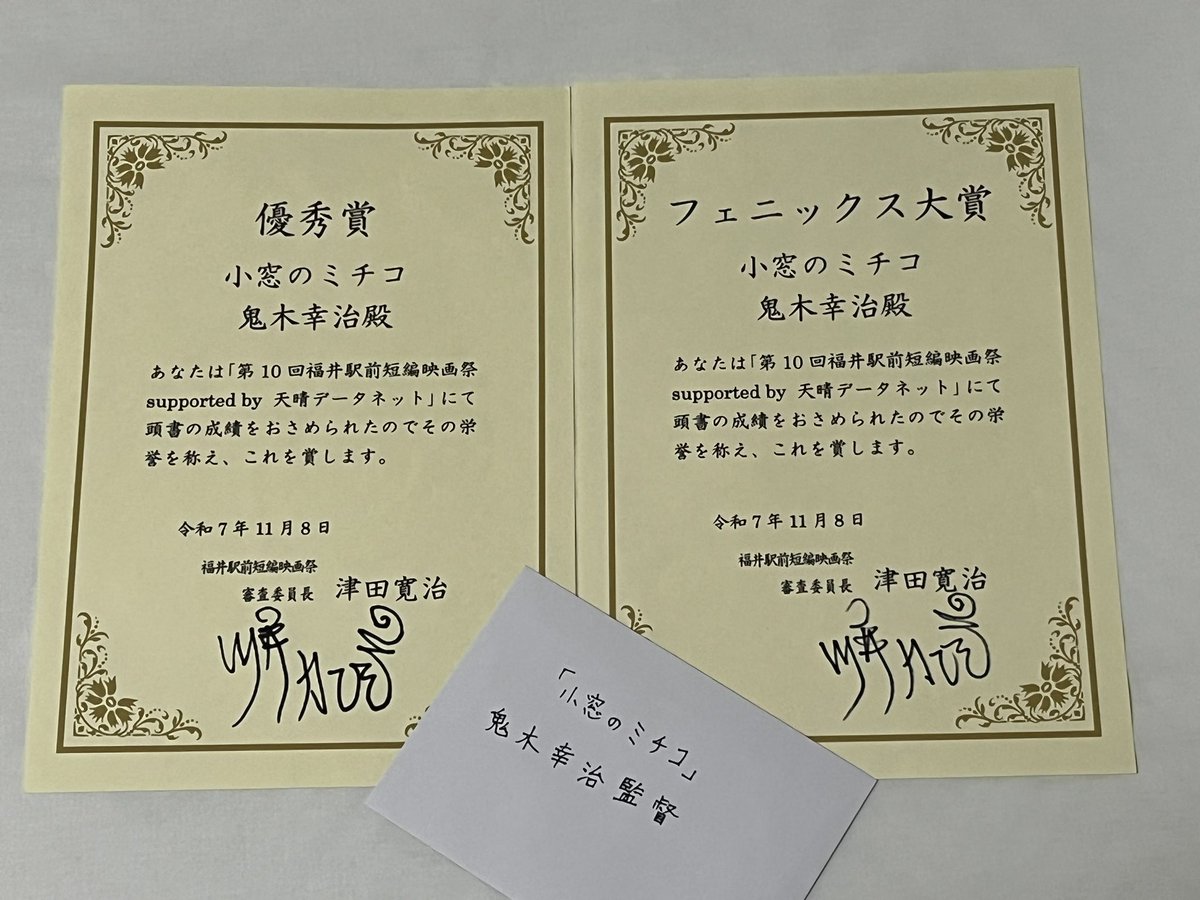 優秀賞
小窓のミチコ
鬼木幸治殿
あなたは「第10回福井駅前短編映画祭
supported by 天晴データネット」にて
頭書の成績をおさめられたのでその栄
誉を称え、これを賞します。
令和7年11月8日
福井駅前短編映画祭
審査委員長 津田寛治
フェニックス大賞
小窓のミチコ
鬼木幸治殿
あなたは「第10回福井駅前短編映画祭
supported by 天晴データネット」にて
頭書の成績をおさめられたのでその栄
誉を称え、これを賞します。
令和7年11月8日
福井駅前短編映画祭
審査委員長 津田寛治
「小窓のミチコ」
鬼木幸治監督